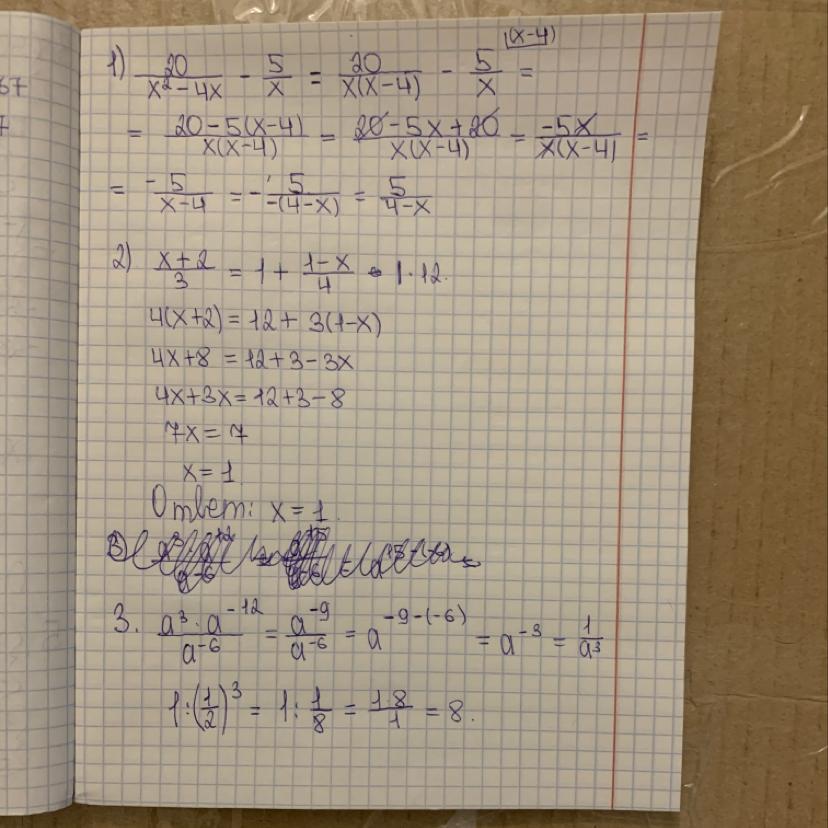 67
7
1) 20/(x²-4x) - 5/x = 20/(x(x-4)) - 5/x |(x-4) =
= (20-5(x-4))/(x(x-4)) = (20-5x+20)/(x(x-4)) = (-5x)/(x(x-4)) =
= -5/(x-4) = -5/(-(4-x)) = 5/(4-x)
2) (x+2)/3 = 1 + (1-x)/4 |·12.
4(x+2) = 12 + 3(1-x)
4x+8 = 12+3-3x
4x+3x = 12+3-8
7x = 7
x = 1
Ответ: x = 1.
3. (a³·a⁻¹²)/a⁻⁶ = a⁻⁹/a⁻⁶ = a⁻⁹⁻⁽⁻⁶⁾ = a⁻³ = 1/a³
1:(1/2)³ = 1:1/8 = (1·8)/1 = 8.